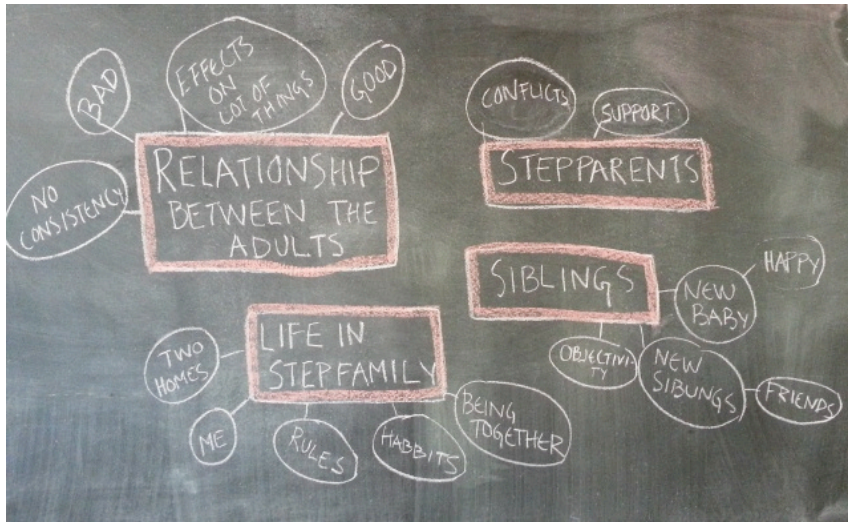 BAD
EFFECTS
ON
LOT OF
THINGS
GOOD
NO
CONSISTENCY
RELATIONSHIP
BETWEEN THE
ADULTS
CONFLICTS
SUPPORT
STEPPARENTS
SIBLINGS
HAPPY
NEW
BABY
OBJECTIVI
TY
NEW
SIBLINGS
FRIENDS
LIFE IN
STEPFAMILY
TWO
HOMES
ME
RULES
HABBITS
BEING
TOGETHER